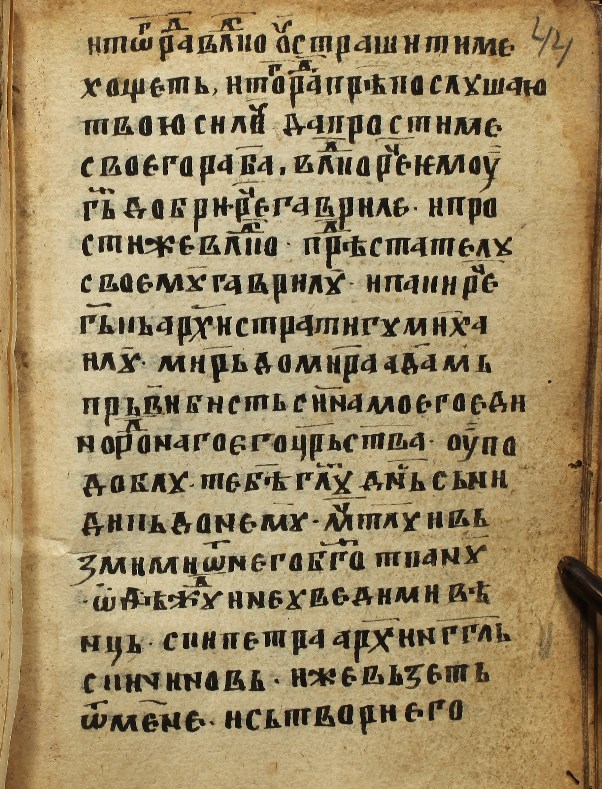 44
и тѡгⷣа влⷣко ѹстрашити ме
хощеть, и тогⷣа прѣпослушаю
твою силꙋ да прости ме
своего раба, влⷣко рⷱе к моѹ
гь҃ добри рⷱе гавриле · и про
сти же влⷣко · прⷣѣстателꙋ
своемꙋ гаврилꙋ · и паки рⷱе
гь҃ нь архистратигꙋ миха
илꙋ · мирь до мира адамь
прьви бисть сина моего еди
нороⷣнаго его црьства · оѹпо
доблꙋ · тебѣ гл҃ю дн҃ьсь ни
дипь до немꙋ · мтлꙋ и вь
зми ми ѿ него бг҃отканꙋ
ѡдⷣѣжꙋ и неꙋведими вѣ
нць · син петра архинггль
син чиновь · иже вьзеть
ѿ мене · и сьтвори его